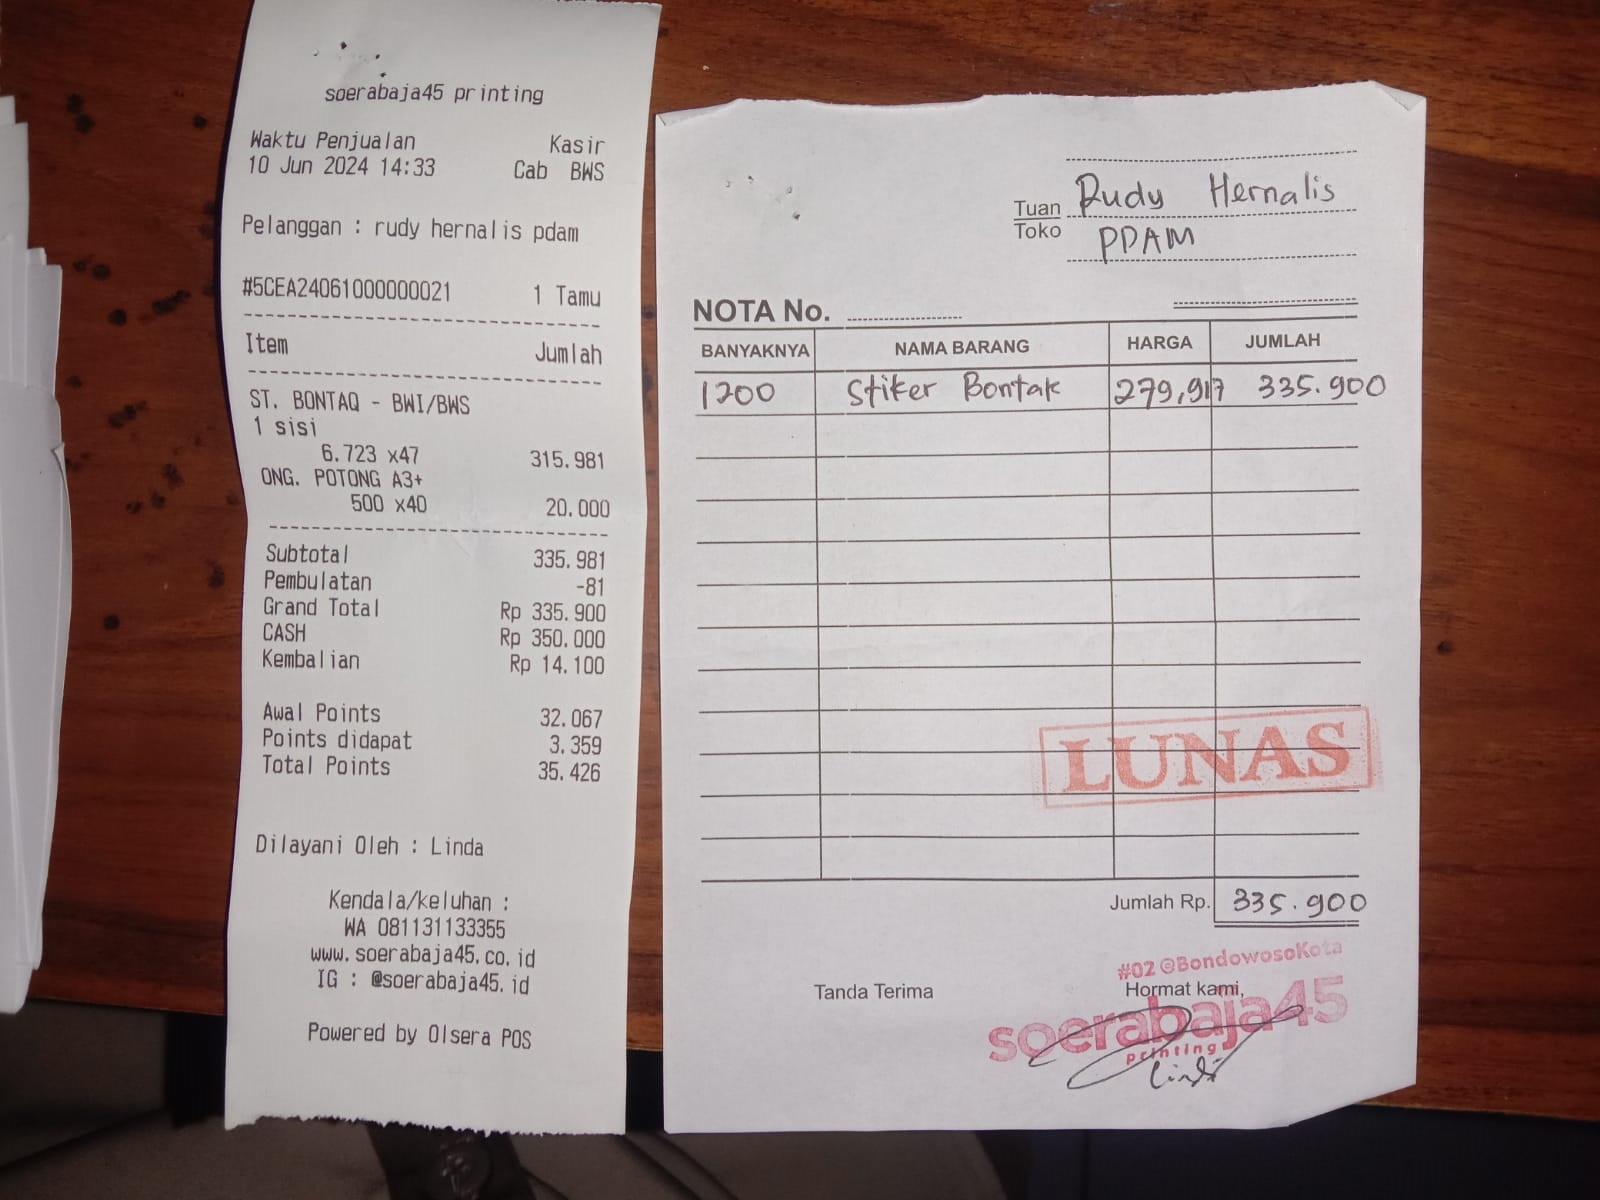 soerabaja45 printing
Waktu Penjualan Kasir
10 Jun 2024 14:33 Cab BWS
Pelanggan : rudy hernalis pdam
#5CEA24061000000021 1 Tamu
Item Jumlah
ST. BONTAQ - BWI/BWS
1 sisi
6.723 x47 315.981
ONG. POTONG A3+
500 x40 20.000
Subtotal 335.981
Pembulatan -81
Grand Total Rp 335.900
CASH Rp 350.000
Kembalian Rp 14.100
Awal Points 32.067
Points didapat 3.359
Total Points 35.426
Dilayani Oleh : Linda
Kendala/keluhan :
WA 081131133355
www.soerabaja45.co.id
IG : @soerabaja45.id
Powered by Olsera POS
Tuan Rudy Hernalis
Toko PDAM
NOTA No.
BANYAKNYA NAMA BARANG HARGA JUMLAH
1200 Stiker Bontak 279,917 335.900
LUNAS
Jumlah Rp. 335.900
#02 @BondowosoKota
Tanda Terima Hormat kami,
soerabaja45
printing
Linda